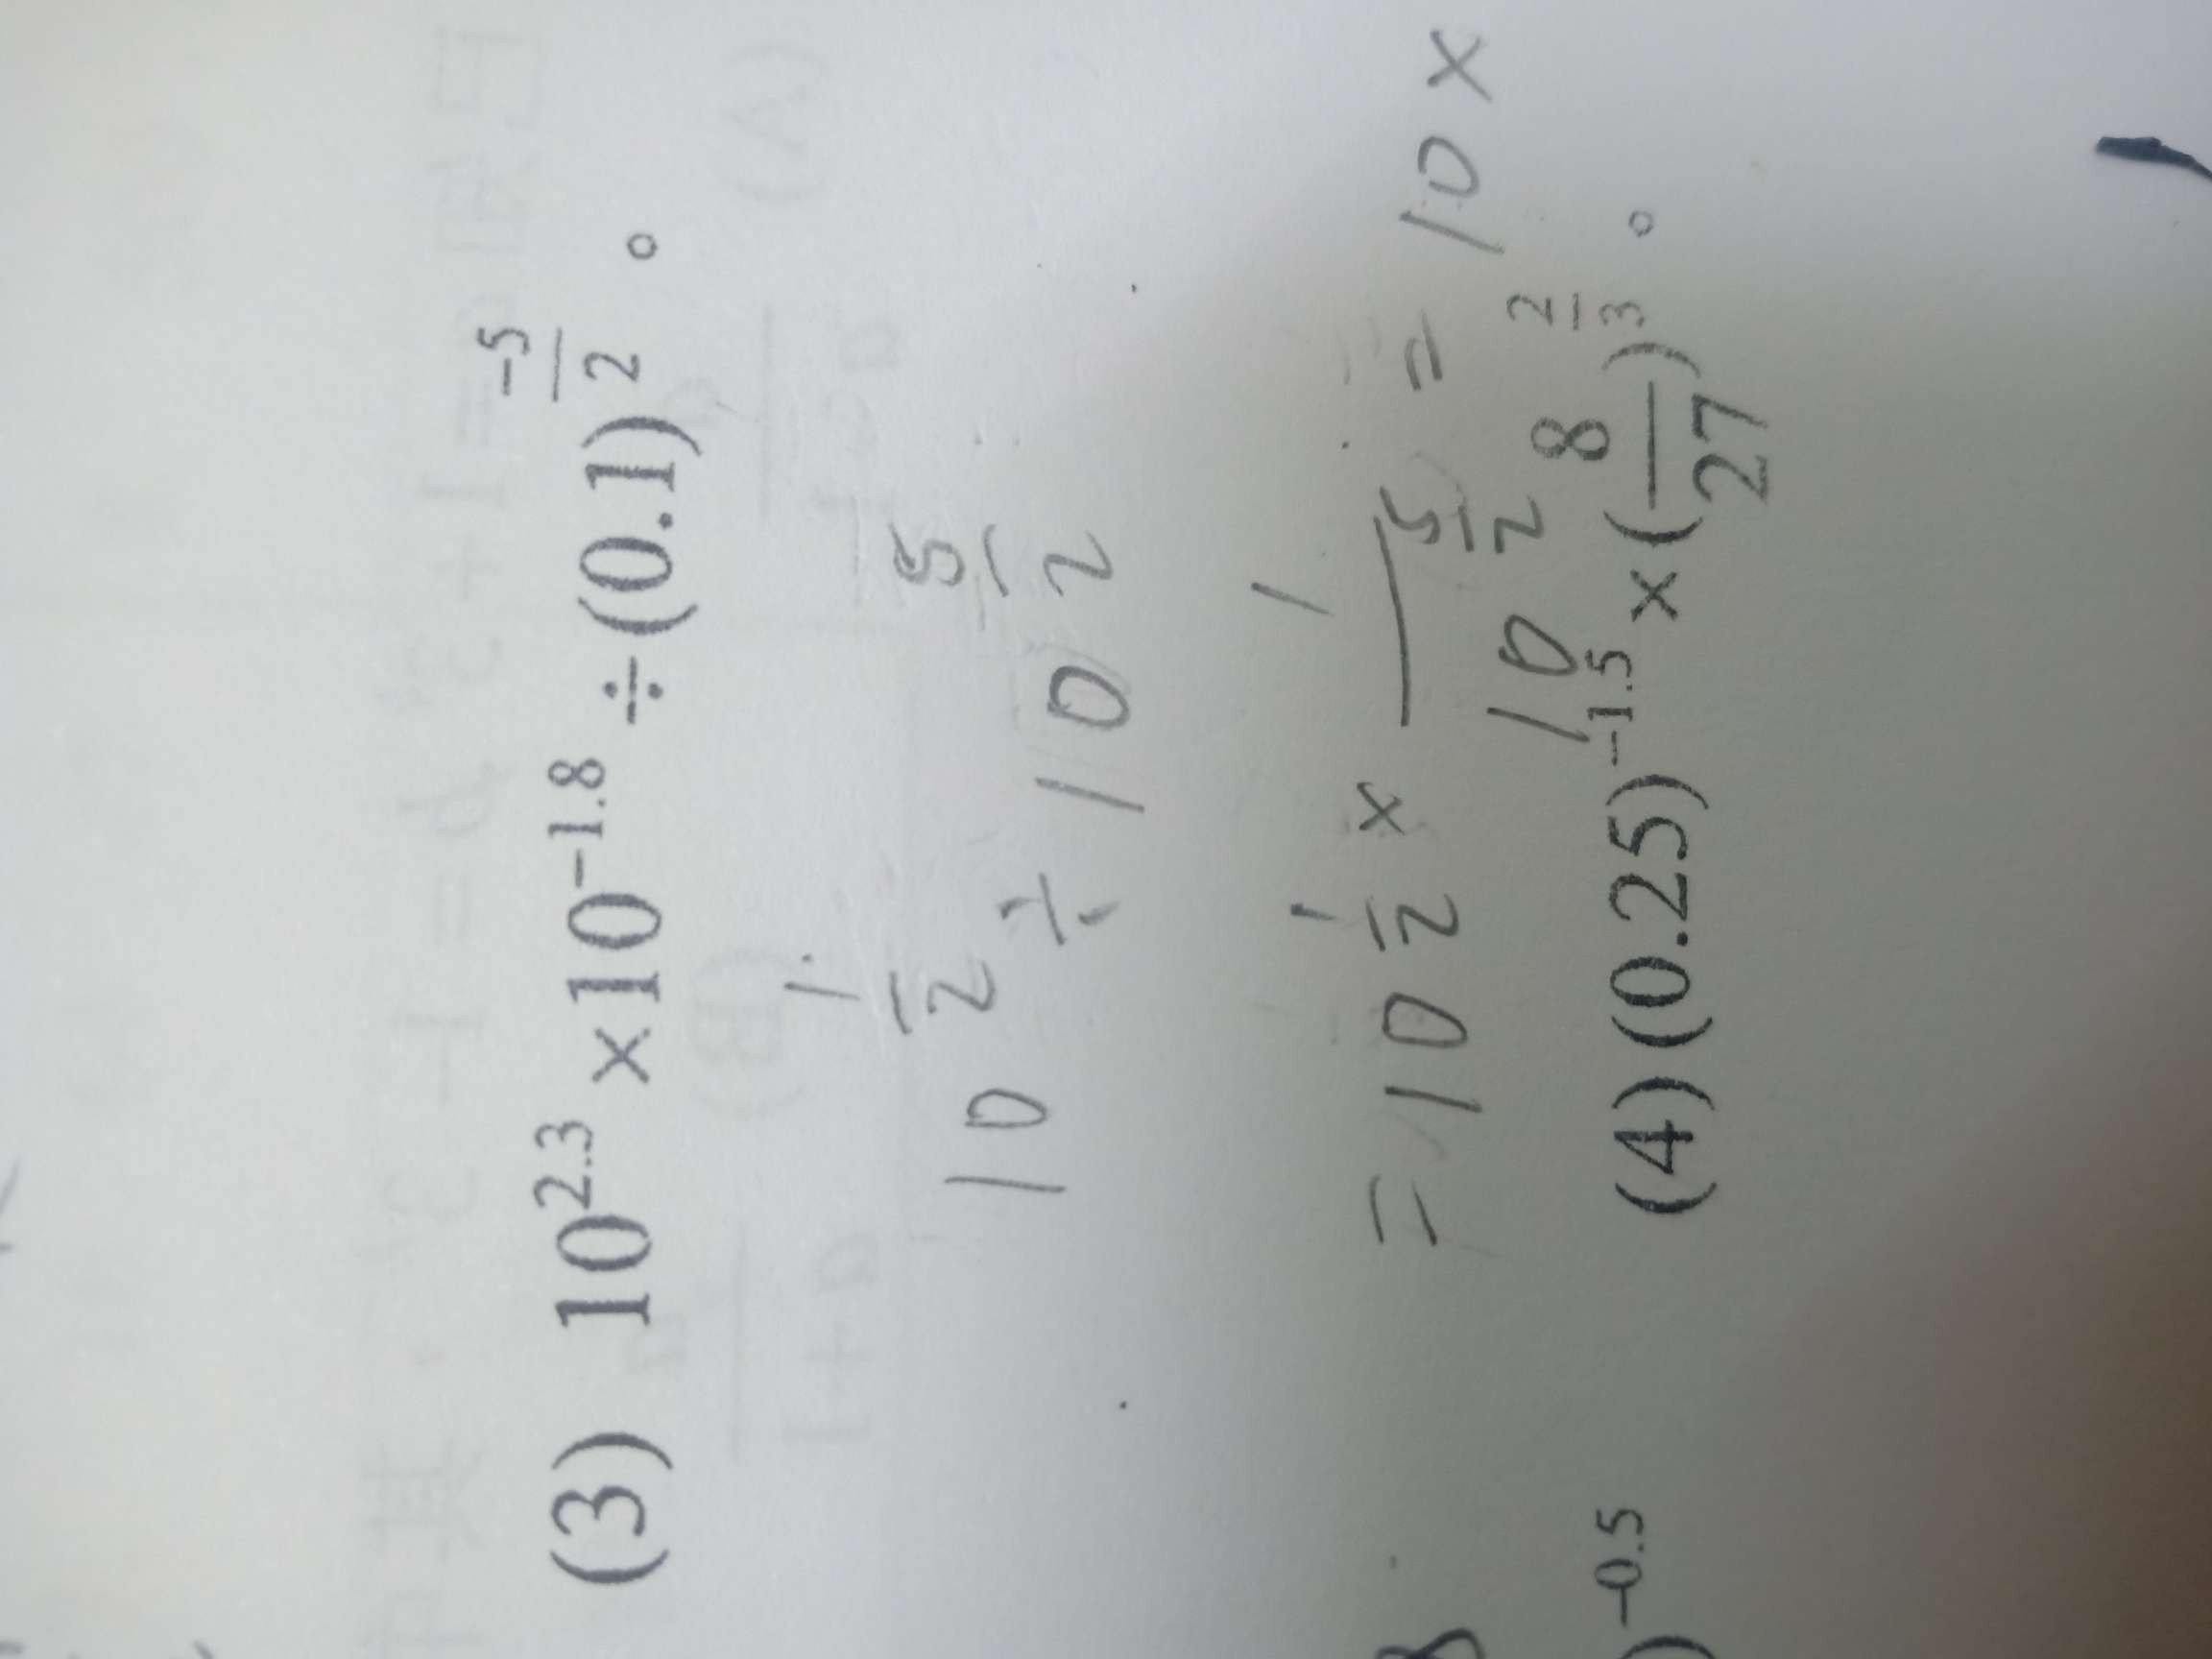 (3) 10^2.3 × 10^−1.8 ÷ (0.1)^(−5/2) 。
10^(1/2) ÷ 10^(5/2)
= 10^(1/2) × 1/10^(5/2) = 10 ×
)^−0.5 (4) (0.25)^−1.5 × (8/27)^(2/3) 。